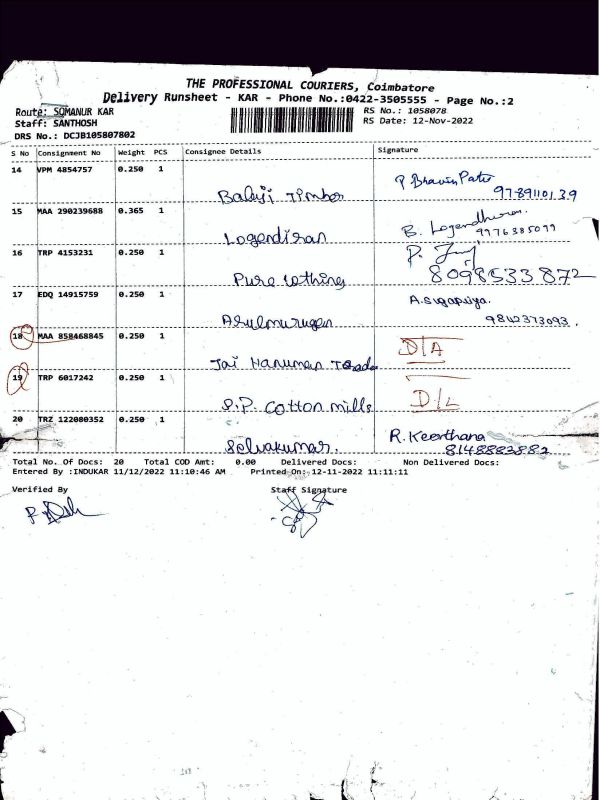 THE PROFESSIONAL COURIERS, Coimbatore
Delivery Runsheet - KAR - Phone No.:0422-3505555 - Page No.:2
Route: SOMANUR KAR
RS No.: 1058078
Staff: SANTHOSH
RS Date: 12-Nov-2022
DRS No.: DCJB105807802
S No Consignment No Weight PCS Consignee Details Signature
14 VPM 4854757 0.250 1
Balaji Timber
9789110139
15 MAA 290239688 0.365 1
Logendiran
B. Logendhiran
9976385099
16 TRP 4153231 0.250 1
Pure
8098533872
17 EDQ 14915759 0.250 1
Arulmurugan
A.sugapriya.
9842373093.
18 MAA 858468845 0.250 1
Jai Hanuman
D/A
19 TRP 6017242 0.250 1
S.P. Cotton mills
D/L
20 TRZ 122080352 0.250 1
Selvakumar.
R. Keerthana
8148883882
Total No. Of Docs: 20 Total COD Amt: 0.00 Delivered Docs: Non Delivered Docs:
Entered By :INDUKAR 11/12/2022 11:10:46 AM Printed On: 12-11-2022 11:11:11
Verified By Staff Signature